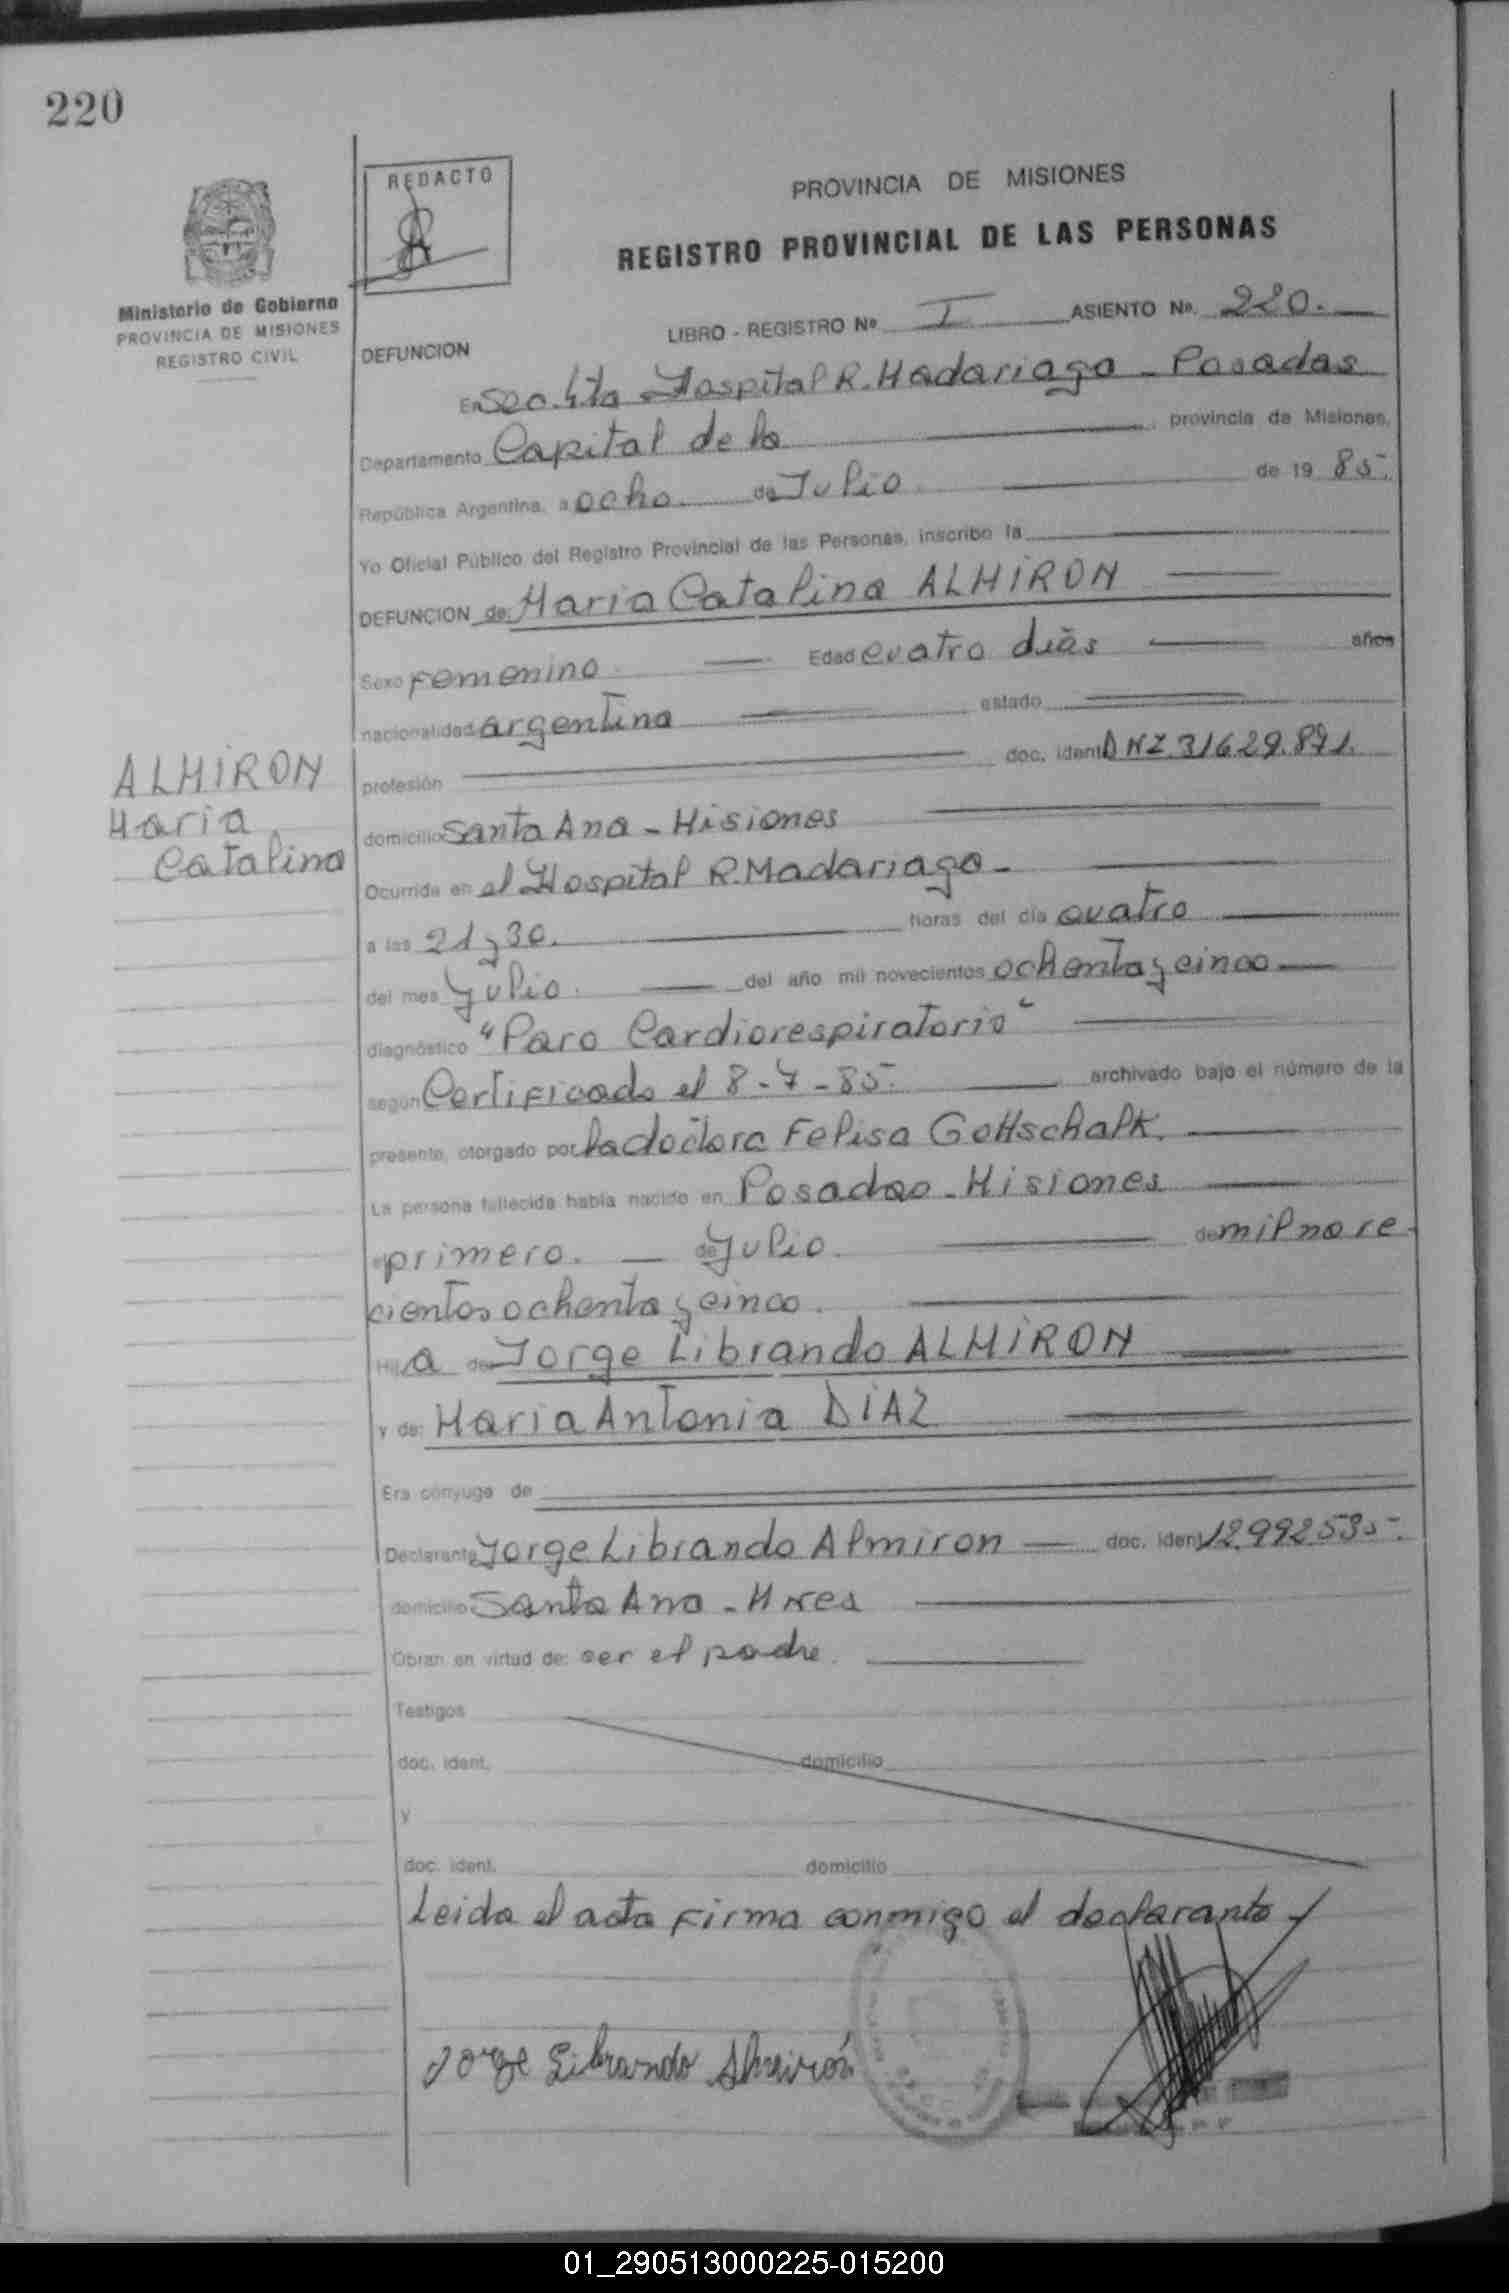 220
REDACTO
PROVINCIA DE MISIONES
REGISTRO PROVINCIAL DE LAS PERSONAS
Ministerio de Gobierno
PROVINCIA DE MISIONES
REGISTRO CIVIL
LIBRO - REGISTRO Nº I ASIENTO Nº. 220.
DEFUNCION
En Sec. 4ta Hospital R. Madariaga - Posadas
Departamento Capital de la provincia de Misiones,
República Argentina, a ocho de Julio de 19 85.
Yo Oficial Público del Registro Provincial de las Personas, inscribo la
DEFUNCION de: Maria Catalina ALMIRON
Sexo Femenino Edad cuatro días años
nacionalidad argentina estado
profesión doc. ident. DNI. 31.629.891.
ALMIRON
Maria
Catalina
domicilio Santa Ana - Misiones
Ocurrida en el Hospital R. Madariaga -
a las 21 y 30. horas del día cuatro
del mes Julio. del año mil novecientos ochenta y cinco
diagnóstico "Paro Cardiorespiratorio"
según Certificado el 8-7-85. archivado bajo el número de la
presente, otorgado por la doctora Felisa Gottschalk.
La persona fallecida había nacido en Posadas - Misiones
el primero. de Julio. de mil nove-
cientos ochenta y cinco.
Hija de Jorge Librando ALMIRON
y de: Maria Antonia DIAZ
Era cónyuge de
Declarante Jorge Librando Almiron doc. ident. 12.992.535.
domicilio Santa Ana - Mnes
Obran en virtud de: ser el padre.
Testigos
doc. ident. domicilio
y
doc. ident. domicilio
Leida el acta firma conmigo el declarante
Jorge Librando Almirón
01_290513000225-015200